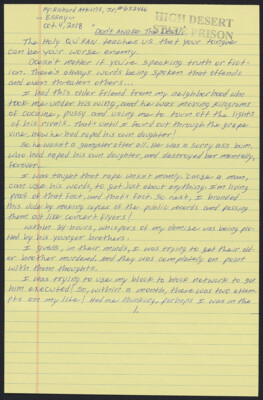 By: Richard Atkins, Jr. #
Essay:
Oct. 4, 2018
Don't Awake The Dead!
HIGH DESERT
PRISON
The Holy Qu'ran teaches us that your tongue
can be your worse enemy.
Doesn't matter if you're speaking truth or fict-
ion. There's always words being spoken that offends
and even threaten others...
I had this older friend from my neighborhood who
took me under his wing, and he was moving kilograms
of cocaine, pussy and using me to turn off the lights
of his rivals. That's until I heard through the grape-
vine, how he had raped his own daughter!
So he wasn't a gangster after all. He was a sorry ass bum,
who had raped his own daughter, and destroyed her mentally,
forever...
I was taught that rape wasn't manly. 'Cause a man,
can use his words, to get just about anything. I'm living
proof of that fact, and that's fact. So next, I branded
this dude by making copies of the public records and passing
them out like concert flyers!
Within 24 hours, whispers of my demise was being plo-
ted by his younger brothers.
I guess, in their minds, I was trying to get their old-
er brother murdered. And they was completely on point
with them thoughts.
I was trying to use my block to block network to get
him executed! So, within a month, there was two attem-
pts on my life! Had me thinking, perhaps I was in the
1.